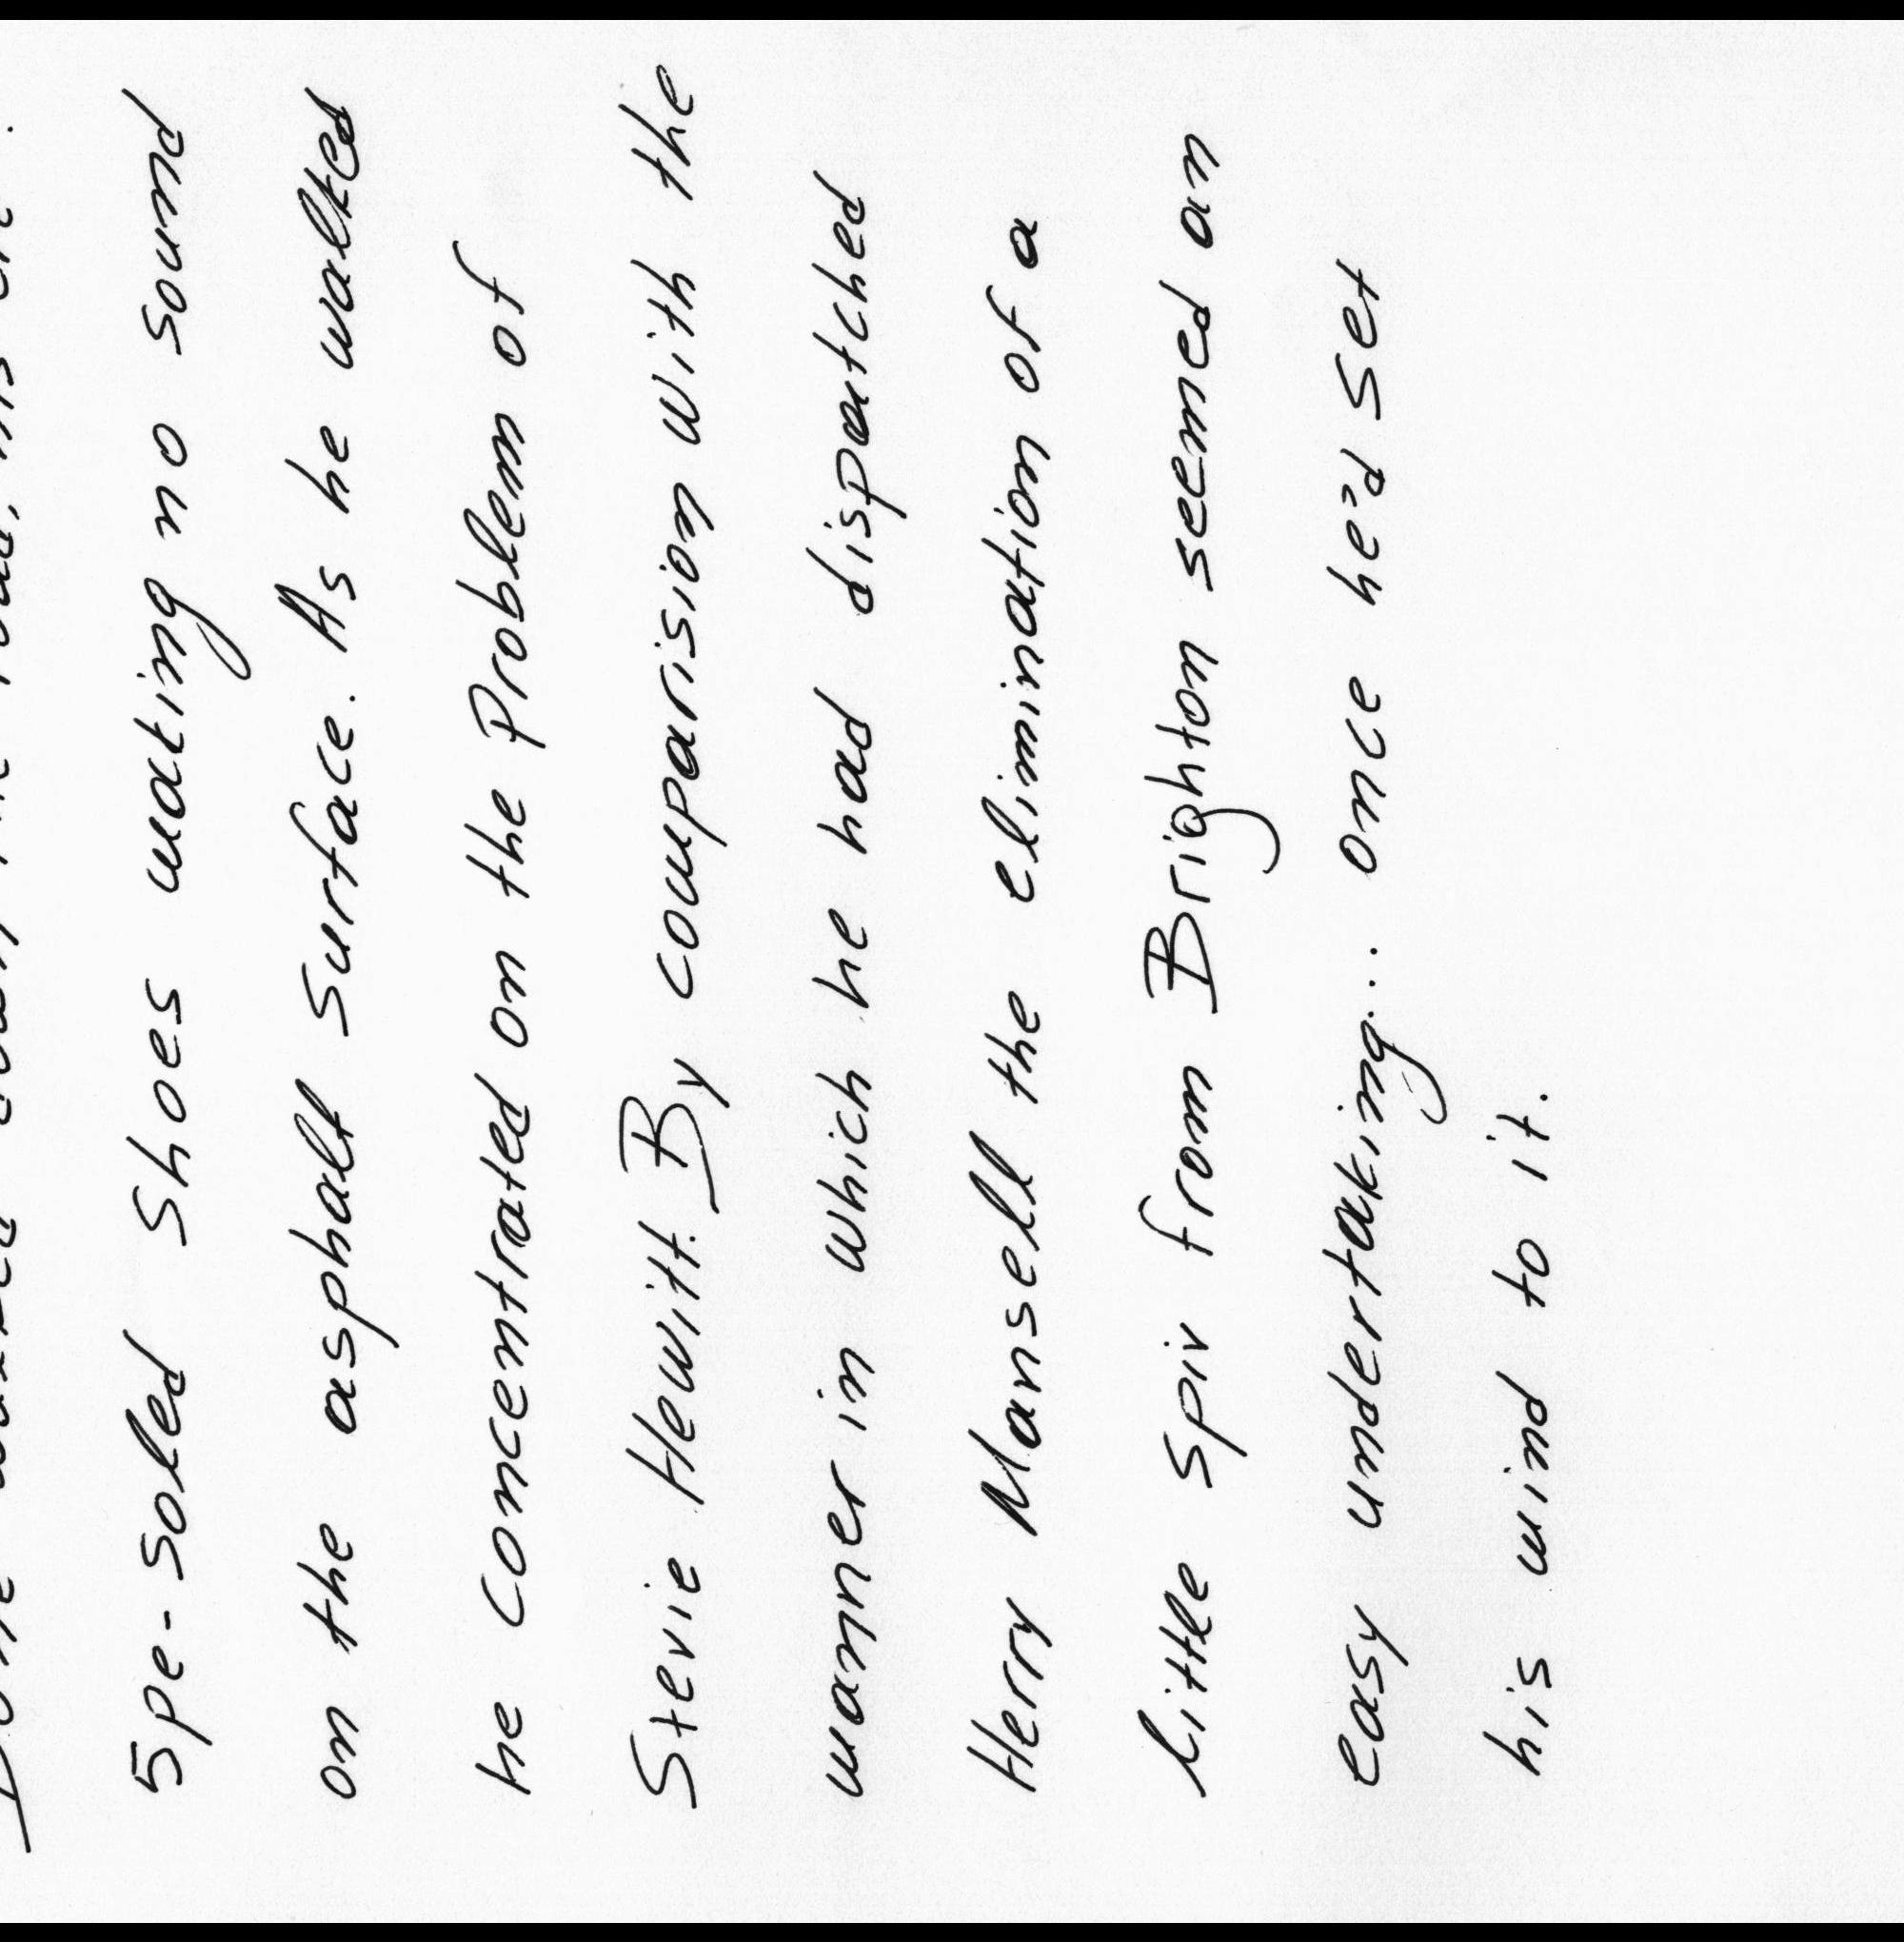 5pe-soled shoes making no sound
on the asphalt surface. As he walked
he concentrated on the Problem of
Stevie Hewitt. By comparision with the
manner in which he had dispatched
Herry Mansell the elimination of a
little spiv from Brighton seemed an
easy undertaking... once he'd set
his mind to it.